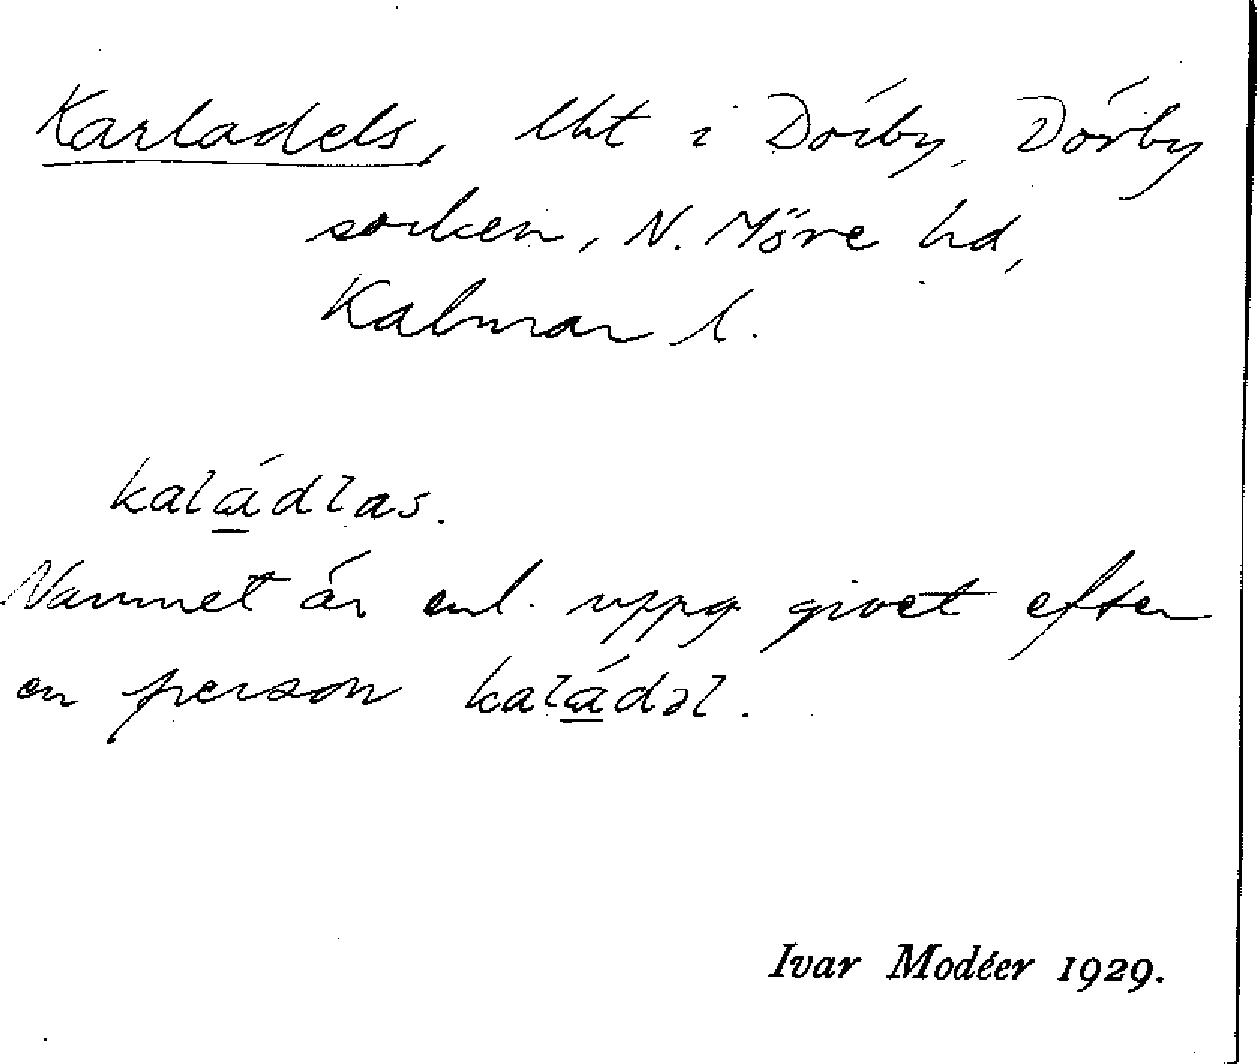 Karladels, lht i Dörby, Dörby
socken, N. Möre hd,
Kalmar l.
kaládlas.
Namnet är enl. uppg givet efter
en person kaládəl.
Ivar Modéer 1929.